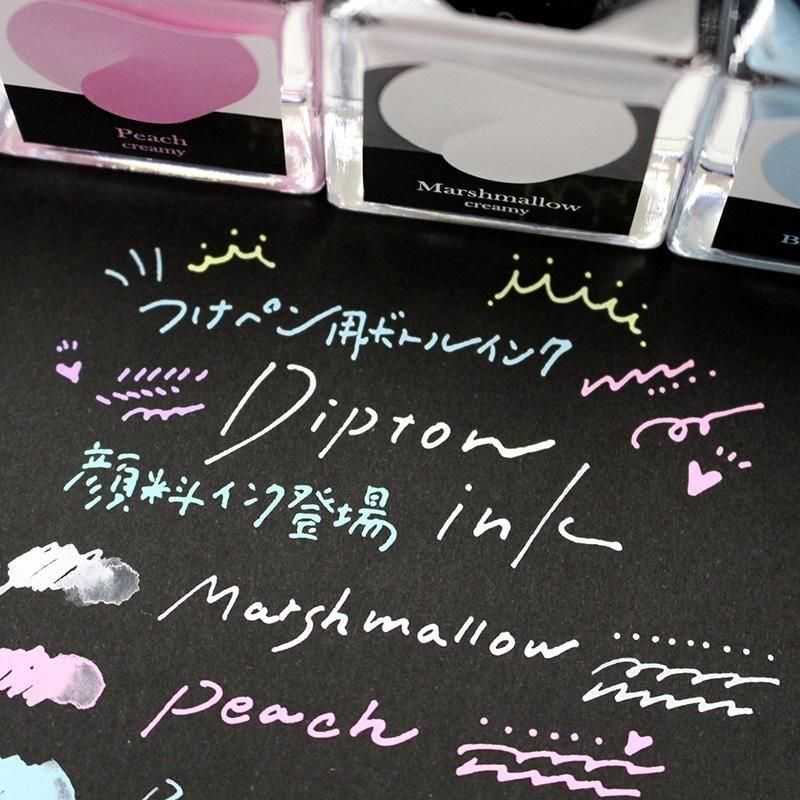 Peach
creamy
Marshmallow
creamy
B
つけペン用ボトルインク
Dipton
ink
顔料インク登場
Marshmallow
peach